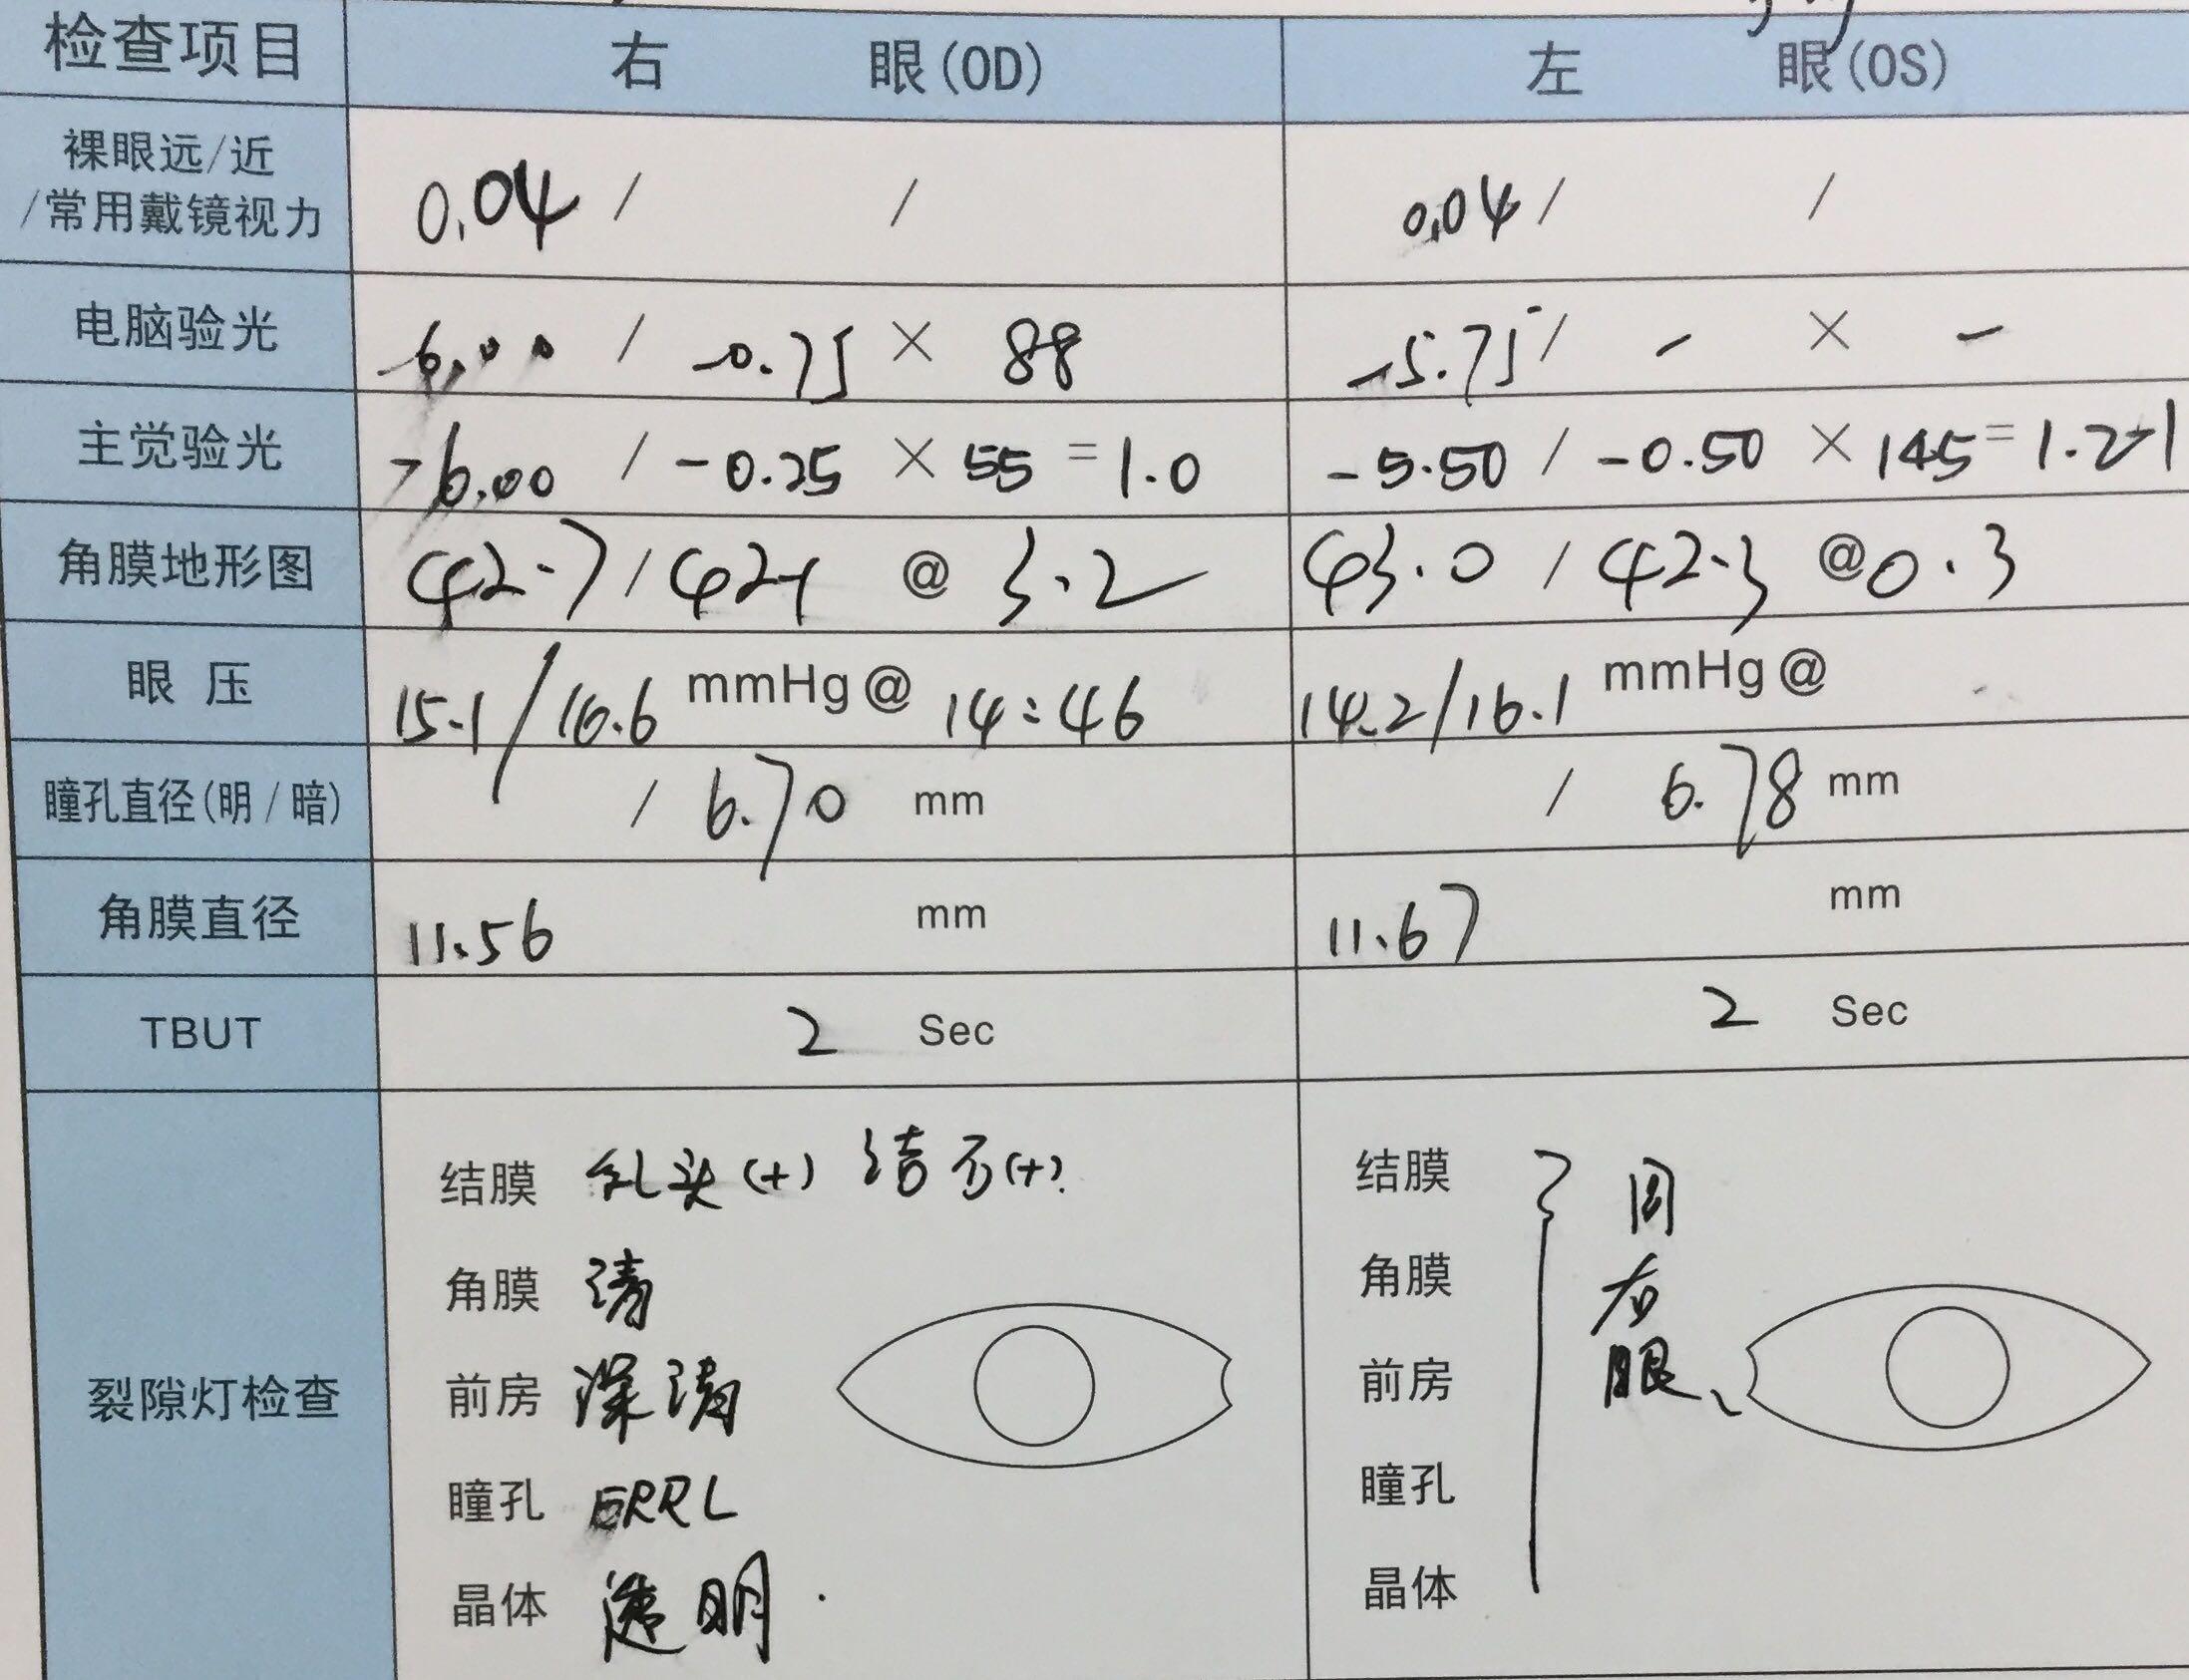 检查项目 右 眼(OD) 左 眼(OS)
裸眼远/近
/常用戴镜视力 0.04 / / 0.04 / /
电脑验光 -6.00 / -0.75 × 88 -5.75 / - × -
主觉验光 -6.00 / -0.25 × 55 = 1.0 -5.50 / -0.50 × 145 = 1.2-1
角膜地形图 42.7 / 42.1 @ 3.2 43.0 / 42.3 @ 0.3
眼 压 15.1/16.6 mmHg@ 14:46 14.2/16.1 mmHg@
瞳孔直径(明/暗) / 6.70 mm / 6.78 mm
角膜直径 11.56 mm 11.67 mm
TBUT 2 Sec 2 Sec
裂隙灯检查
结膜 乳头(+) 结石(+). 结膜 同
角膜 清 角膜 右
前房 深清 前房 眼、
瞳孔 ERRL 瞳孔
晶体 透明. 晶体